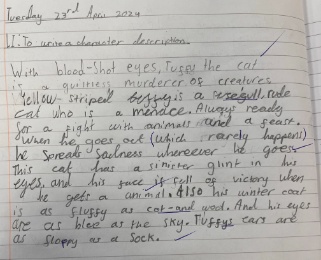 Tuesday 23rd April 2024
L.I. To write a character description.
With blood-shot eyes, Tuffy the cat
is a guiltness murderer of creatures
Yellow-striped is a rude
cat who is a menace. Always ready
for a fight with animals and a feast.
When he goes out (which rarely happens)
he spreads sadness whereever he goes
This cat has a sinister glint in his
eyes, and his face is full of victory when
he gets a animal. Also his winter coat
is as fluffy as and wool. And his eyes
are as blue as the sky. Tuffys ears are
as floppy as a sock.